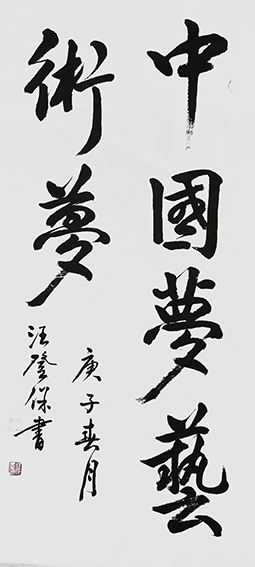 中國夢藝
術夢
庚子春月
汪登保書